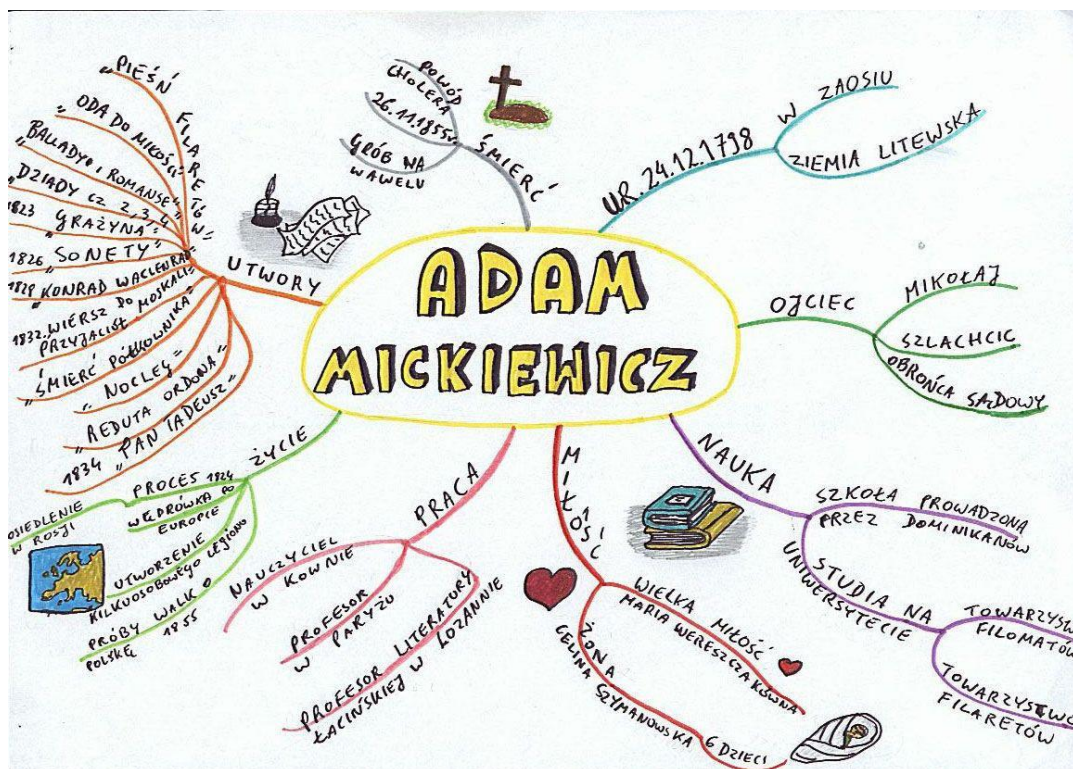 ADAM
MICKIEWICZ
UR. 24.12.1798
W ZAOSIU
ZIEMIA LITEWSKA
OJCIEC
MIKOŁAJ
SZLACHCIC
OBROŃCA SĄDOWY
NAUKA
SZKOŁA PROWADZONA
PRZEZ DOMINIKANÓW
STUDIA NA
UNIWERSYTECIE
TOWARZYSTW
FILOMATÓW
TOWARZYSTWO
FILARETÓW
MIŁOŚĆ
WIELKA MIŁOŚĆ
MARIA WERESZCZAKÓWNA
ŻONA
CELINA SZYMANOWSKA
6 DZIECI
PRACA
NAUCZYCIEL
W KOWNIE
PROFESOR
W PARYŻU
PROFESOR LITERATURY
ŁACIŃSKIEJ W LOZANNIE
ŻYCIE
PROCES 1824
OSIEDLENIE
W ROSJI
WĘDRÓWKA PO
EUROPIE
UTWORZENIE
KILKUOSOBOWEGO LEGIONU
PRÓBY WALK O
POLSKĘ 1855
UTWORY
"PIEŚŃ FILARETÓW"
"ODA DO MIŁOŚCI"
"BALLADY I ROMANSE"
"DZIADY CZ. 2,3,4"
1823 "GRAŻYNA"
1826 "SONETY"
1828 "KONRAD WACLENRAD"
1832 "WIERSZ DO
PRZYJACIÓŁ MOSKALI"
"ŚMIERĆ PÓŁKOWNIKA"
"NOCLEG"
"REDUTA ORDONA"
1834 "PAN TADEUSZ"
ŚMIERĆ
POWÓD
CHOLERA
26.11.1855r.
GRÓB NA
WAWELU